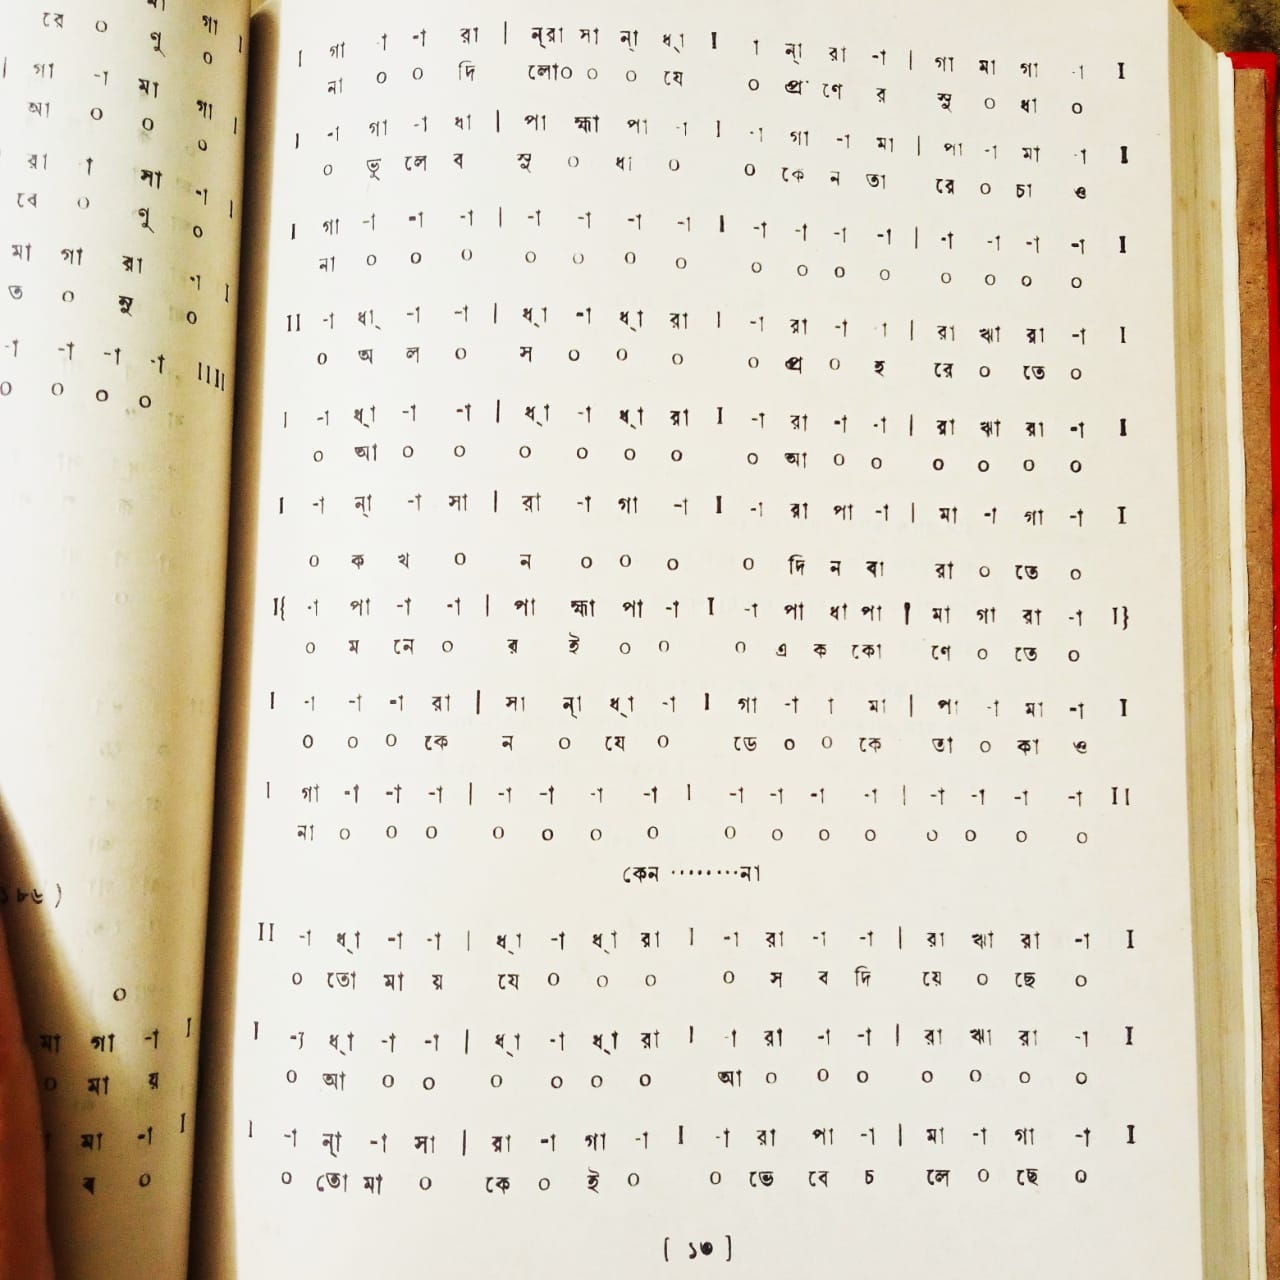 I গা -া -া রা | ন্‌রা সা ন্‌া ধ্‌া I া ন্‌া রা -া | গা মা গা -া I
না ০ ০ দি লো০ ০ ০ যে ০ প্রা ণে র সু ০ ধা ০
I -া গা -া ধা | পা হ্মা পা -া I -া গা -া মা | পা -া মা -া I
০ ভু লে ব সু ০ ধা ০ ০ কে ন তা রে ০ চা ও
I গা -া -া -া | -া -া -া -া I -া -া -া -া | -া -া -া -া I
না ০ ০ ০ ০ ০ ০ ০ ০ ০ ০ ০ ০ ০ ০ ০
II -া ধা্ -া -া | ধ্‌া -া ধ্‌া রা I -া রা -া া | রা ঋা রা -া I
০ অ ল ০ স ০ ০ ০ ০ প্র ০ হ রে ০ তে ০
I -া ধ্‌া -া -া | ধ্‌া -া ধ্‌া রা I -া রা -া -া | রা ঋা রা -া I
০ আ ০ ০ ০ ০ ০ ০ ০ আ ০ ০ ০ ০ ০ ০
I -া ন্‌া -া সা | রা -া গা -া I -া রা পা -া | মা -া গা -া I
০ ক খ ০ ন ০ ০ ০ ০ দি ন বা রা ০ তে ০
I{ -া পা -া -া | পা হ্মা পা -া I -া পা ধা পা | মা গা রা -া I}
০ ম নে ০ র ই ০ ০ ০ এ ক কো ণে ০ তে ০
I -া -া -া রা | সা ন্‌া ধ্‌া -া I গা -া া মা | পা -া মা -া I
০ ০ ০ কে ন ০ যে ০ ডে ০ ০ কে তা ০ কা ও
I গা -া -া -া | -া -া -া -া I -া -া -া -া | -া -া -া -া II
না ০ ০ ০ ০ ০ ০ ০ ০ ০ ০ ০ ০ ০ ০ ০
কেন ········না
II -া ধ্‌া -া -া | ধ্‌া -া ধ্‌া রা I -া রা -া -া | রা ঋা রা -া I
০ তো মা য় যে ০ ০ ০ ০ স ব দি য়ে ০ ছে ০
I -া ধ্‌া -া -া | ধ্‌া -া ধ্‌া রা I -া রা -া -া | রা ঋা রা -া I
০ আ ০ ০ ০ ০ ০ ০ আ ০ ০ ০ ০ ০ ০ ০
I -া ন্‌া -া সা | রা -া গা -া I -া রা পা -া | মা -া গা -া I
০ তো মা ০ কে ০ ই ০ ০ ভে বে চ লে ০ ছে ০
[ ১৩ ]